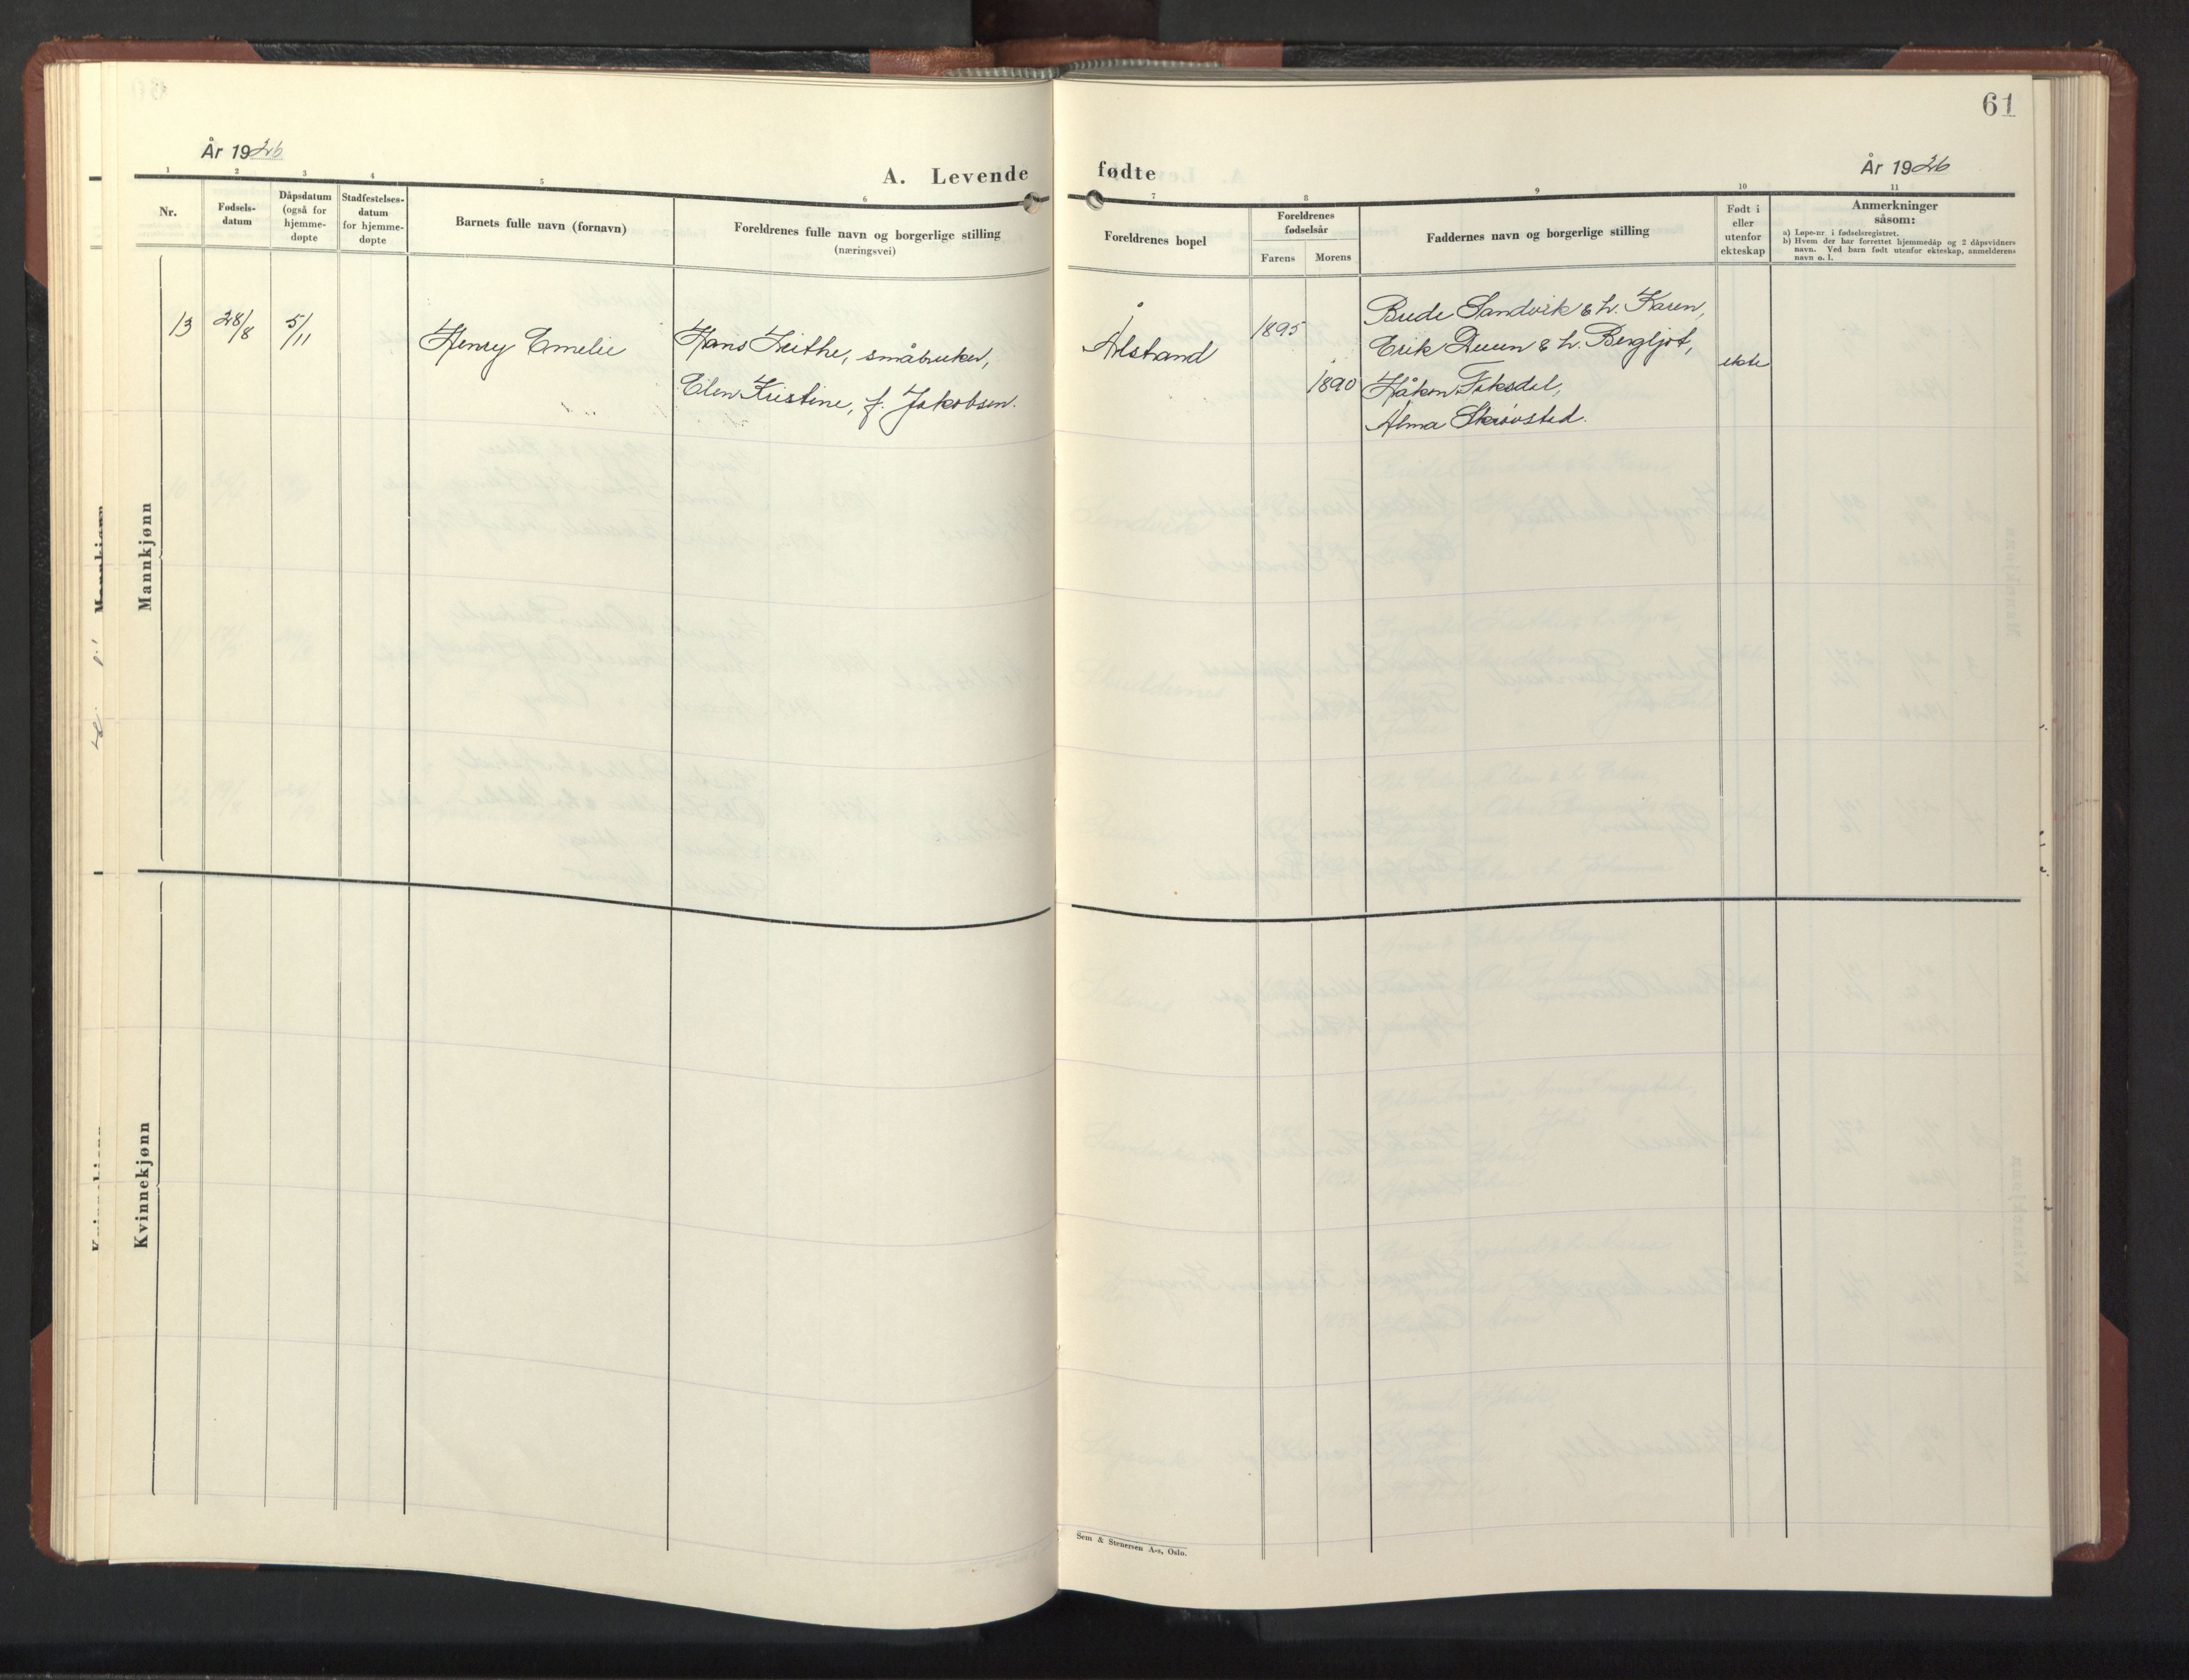 61
År 1926
A. Levende fødte
År 1926
1 2 3 4 5 6 7 8 9 10 11
Nr.
Fødsels-
datum
Dåpsdatum
(også for
hjemme-
døpte
Stadfestelses-
datum
for hjemme-
døpte
Barnets fulle navn (fornavn)
Foreldrenes fulle navn og borgerlige stilling
(næringsvei)
Foreldrenes bopel
Foreldrenes
fødselsår
Farens
Morens
Faddernes navn og borgerlige stilling
Født i
eller
utenfor
ekteskap
Anmerkninger
såsom:
a) Løpe-nr. i fødselsregistret.
b) Hvem der har forrettet hjemmedåp og 2 dåpsvidners
navn. Ved barn født utenfor ekteskap, anmelderens
navn o. l.
Mannkjønn
13
28/8
5/11
Henry Emelie
Hans Leithe, småbruker,
Ellen Kristine, f. Jakobsen.
Ålstrand
1895
1890
Brede Sandvik & h. Karen,
Erik Duun & h. Bergljot,
Håkon Faksdal,
Alma Skrøvsted.
ekte
Kvinnekjønn
Sem & Stenersen A-s, Oslo.